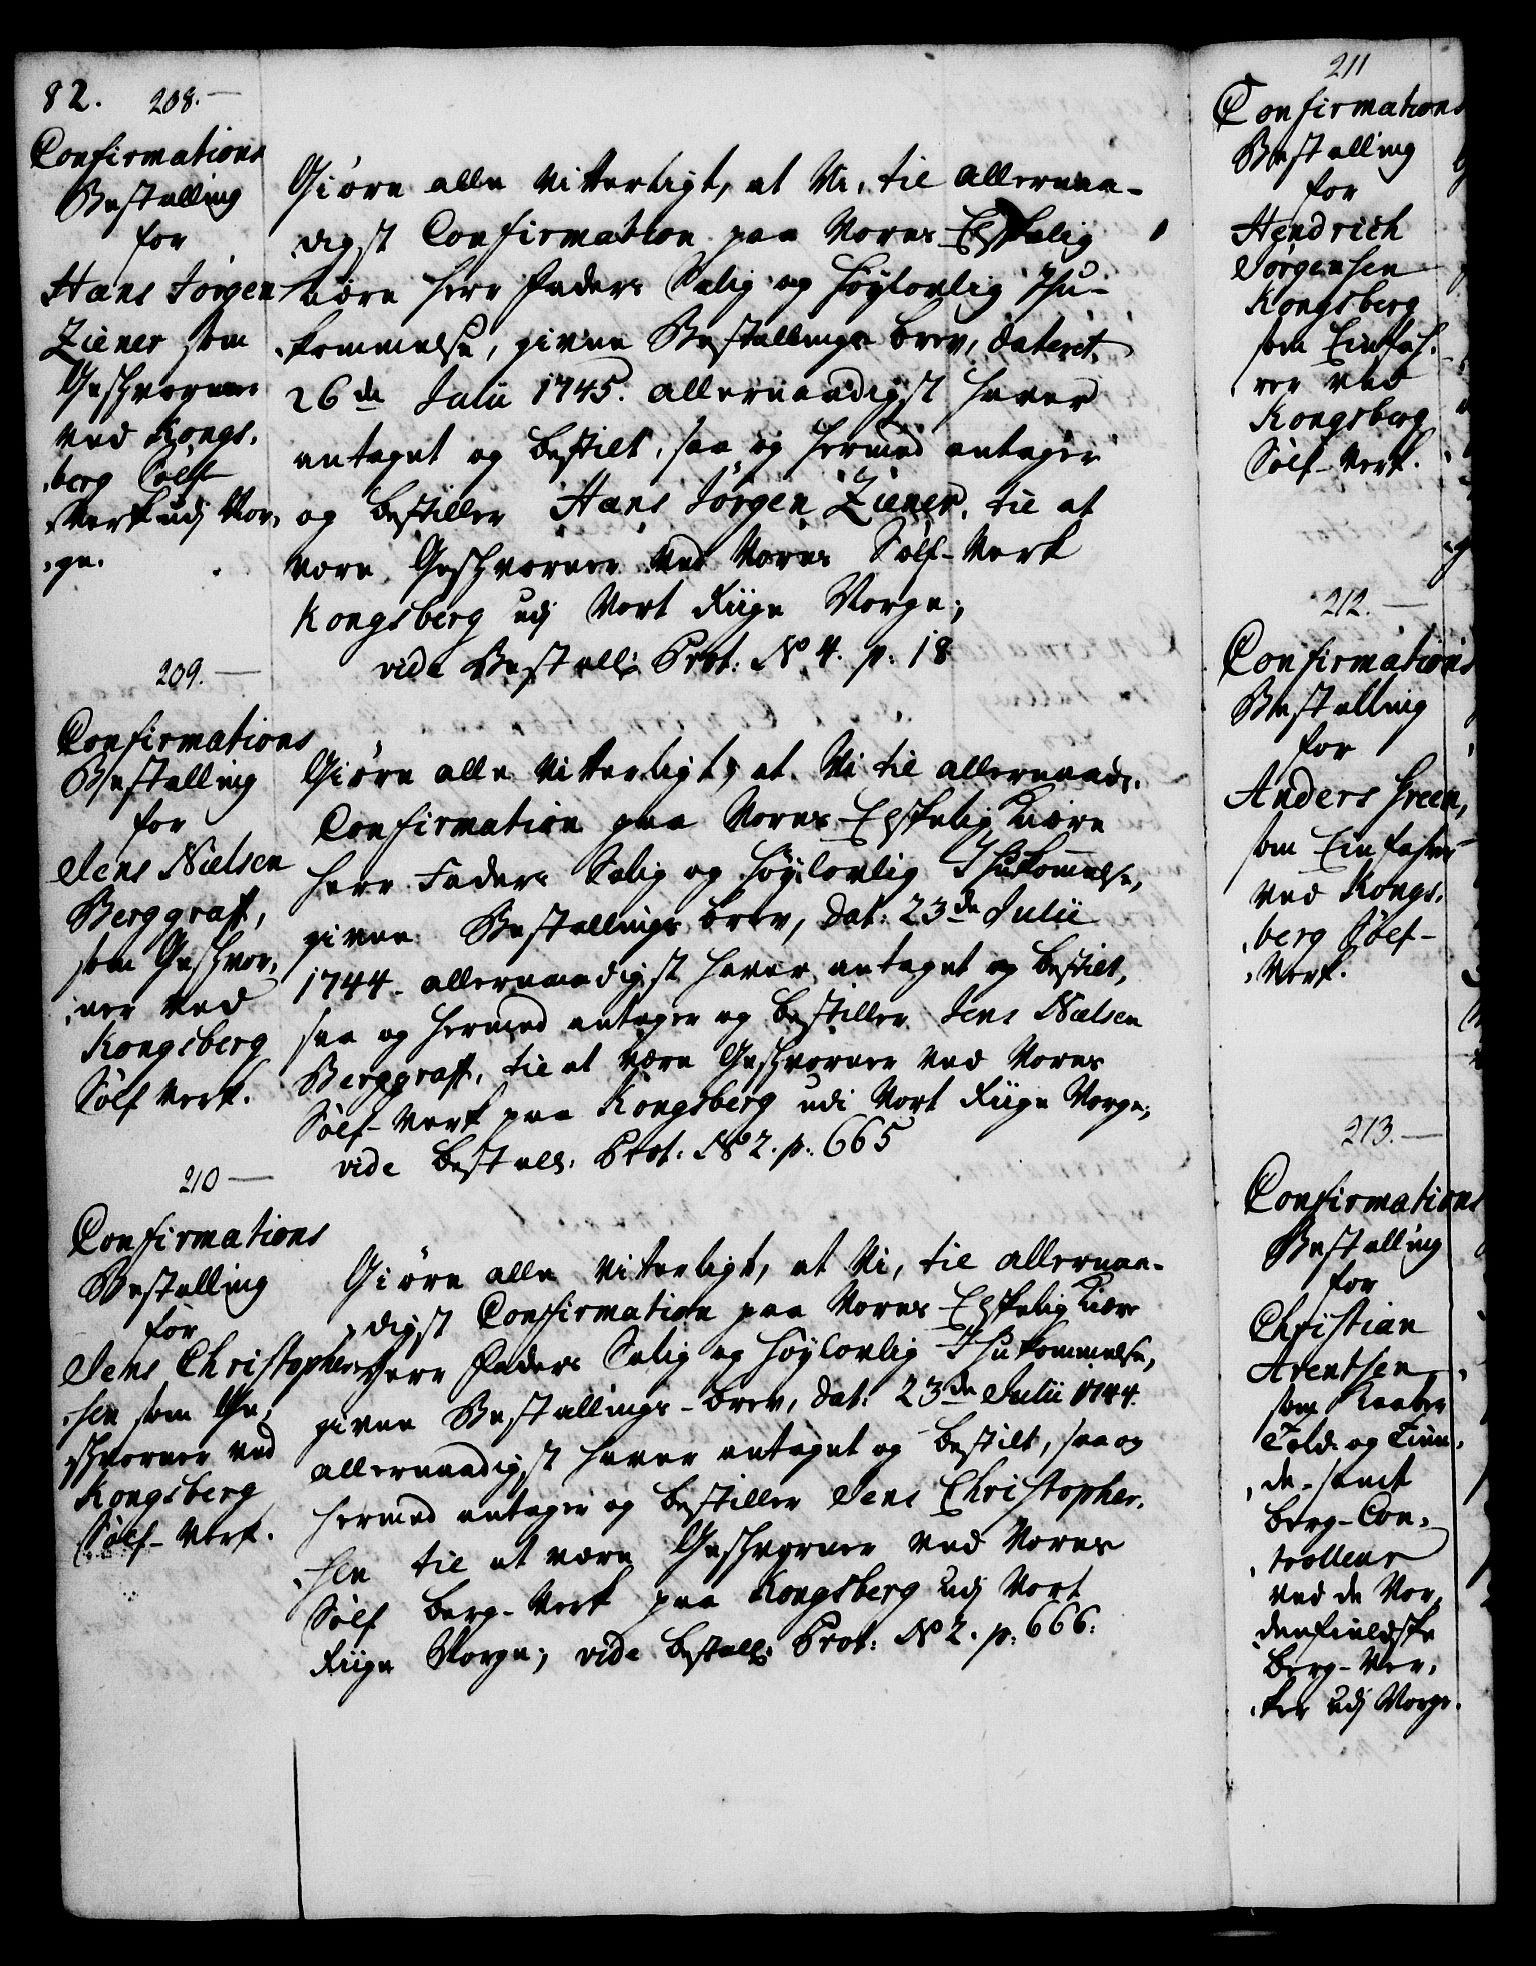 82.
208.
Confirmations
Bestalling
for
Hans Jørgen
Ziener som
Geschworner
ved Kongs,
,berg Sølf
Werk udj Nor,
,ge.
Giøre alle Vitterligt, at Vi, til allernaa-
digst Confirmation paa Vores Elskelig
kiære Herr Faders Salig og høylovlig Ihu-
kommelse, givne Bestallings brev, dateret
26de Julii 1745. allernaadigst haver
antaget og bestilt, saa og hermed antager
og bestiller Hans Jørgen Ziener, til at
være Geschworner ved Vores Sølf-Verk
Kongsberg udj Vort Riige Norge;
vide Bestall: Prot: No 4. p: 18
209.
Confirmations
Bestalling
for
Jens Nielsen
Berggraff,
som Geschwor,
,ner ved
Kongsberg
Sølf Verk.
Giøre alle Vitterligt, at Vi til allernaads.
Confirmation paa Vores Elskelig Kiære
Herr Faders Salig og høylovlig Ihukommelse,
givne Bestallings brev, dat: 23de Julii
1744. allernaadigst haver antaget og bestilt,
saa og hermed antager og bestiller Jens Nielsen
Berggraff, til at være Geschworner ved Vores
Sølf-Verk paa Kongsberg udi Vort Riige Norge;
vide bestall: Prot: No 2. p: 665
210
Confirmations
Bestalling
for
Jens Christopher,
,sen som Ge,
schworner ved
Kongsberg
Sølf-Verk.
Giøre alle vitterligt, at Vi, til allernaa-
digst Confirmation paa Vores Elskelig Kiære
Herr Faders Salig og høylovlig Ihukommelse,
givne Bestallings-brev, dat: 23de Julii 1744.
allernaadigst haver antaget og bestilt, saa og
hermed antager og bestiller Jens Christopher,
,sen til at være Geschworner ved Vores
Sølf Berg-Verk paa Kongsberg udj Vort
Riige Norge; vide bestall: Prot: No 2. p: 666.
211
Confirmations
Bestalling
for
Hendrich
Jørgensen
Kongsberg
som Einfah,
rer ved
Kongsberg
Sølf-Verk.
212.
Confirmations
Bestalling
for
Anders Green,
som Einfahrer
ved Kongs,
,berg Sølf-
,Verk.
213.
Confirmations
Bestalling
for
Christian
Arentsen
som Kaaber
Told og Tiin,
,de-samt
Berg-Con,
,trolleur
ved de Nor,
denfieldske
Berg-Ver,
,ker udj Norge.